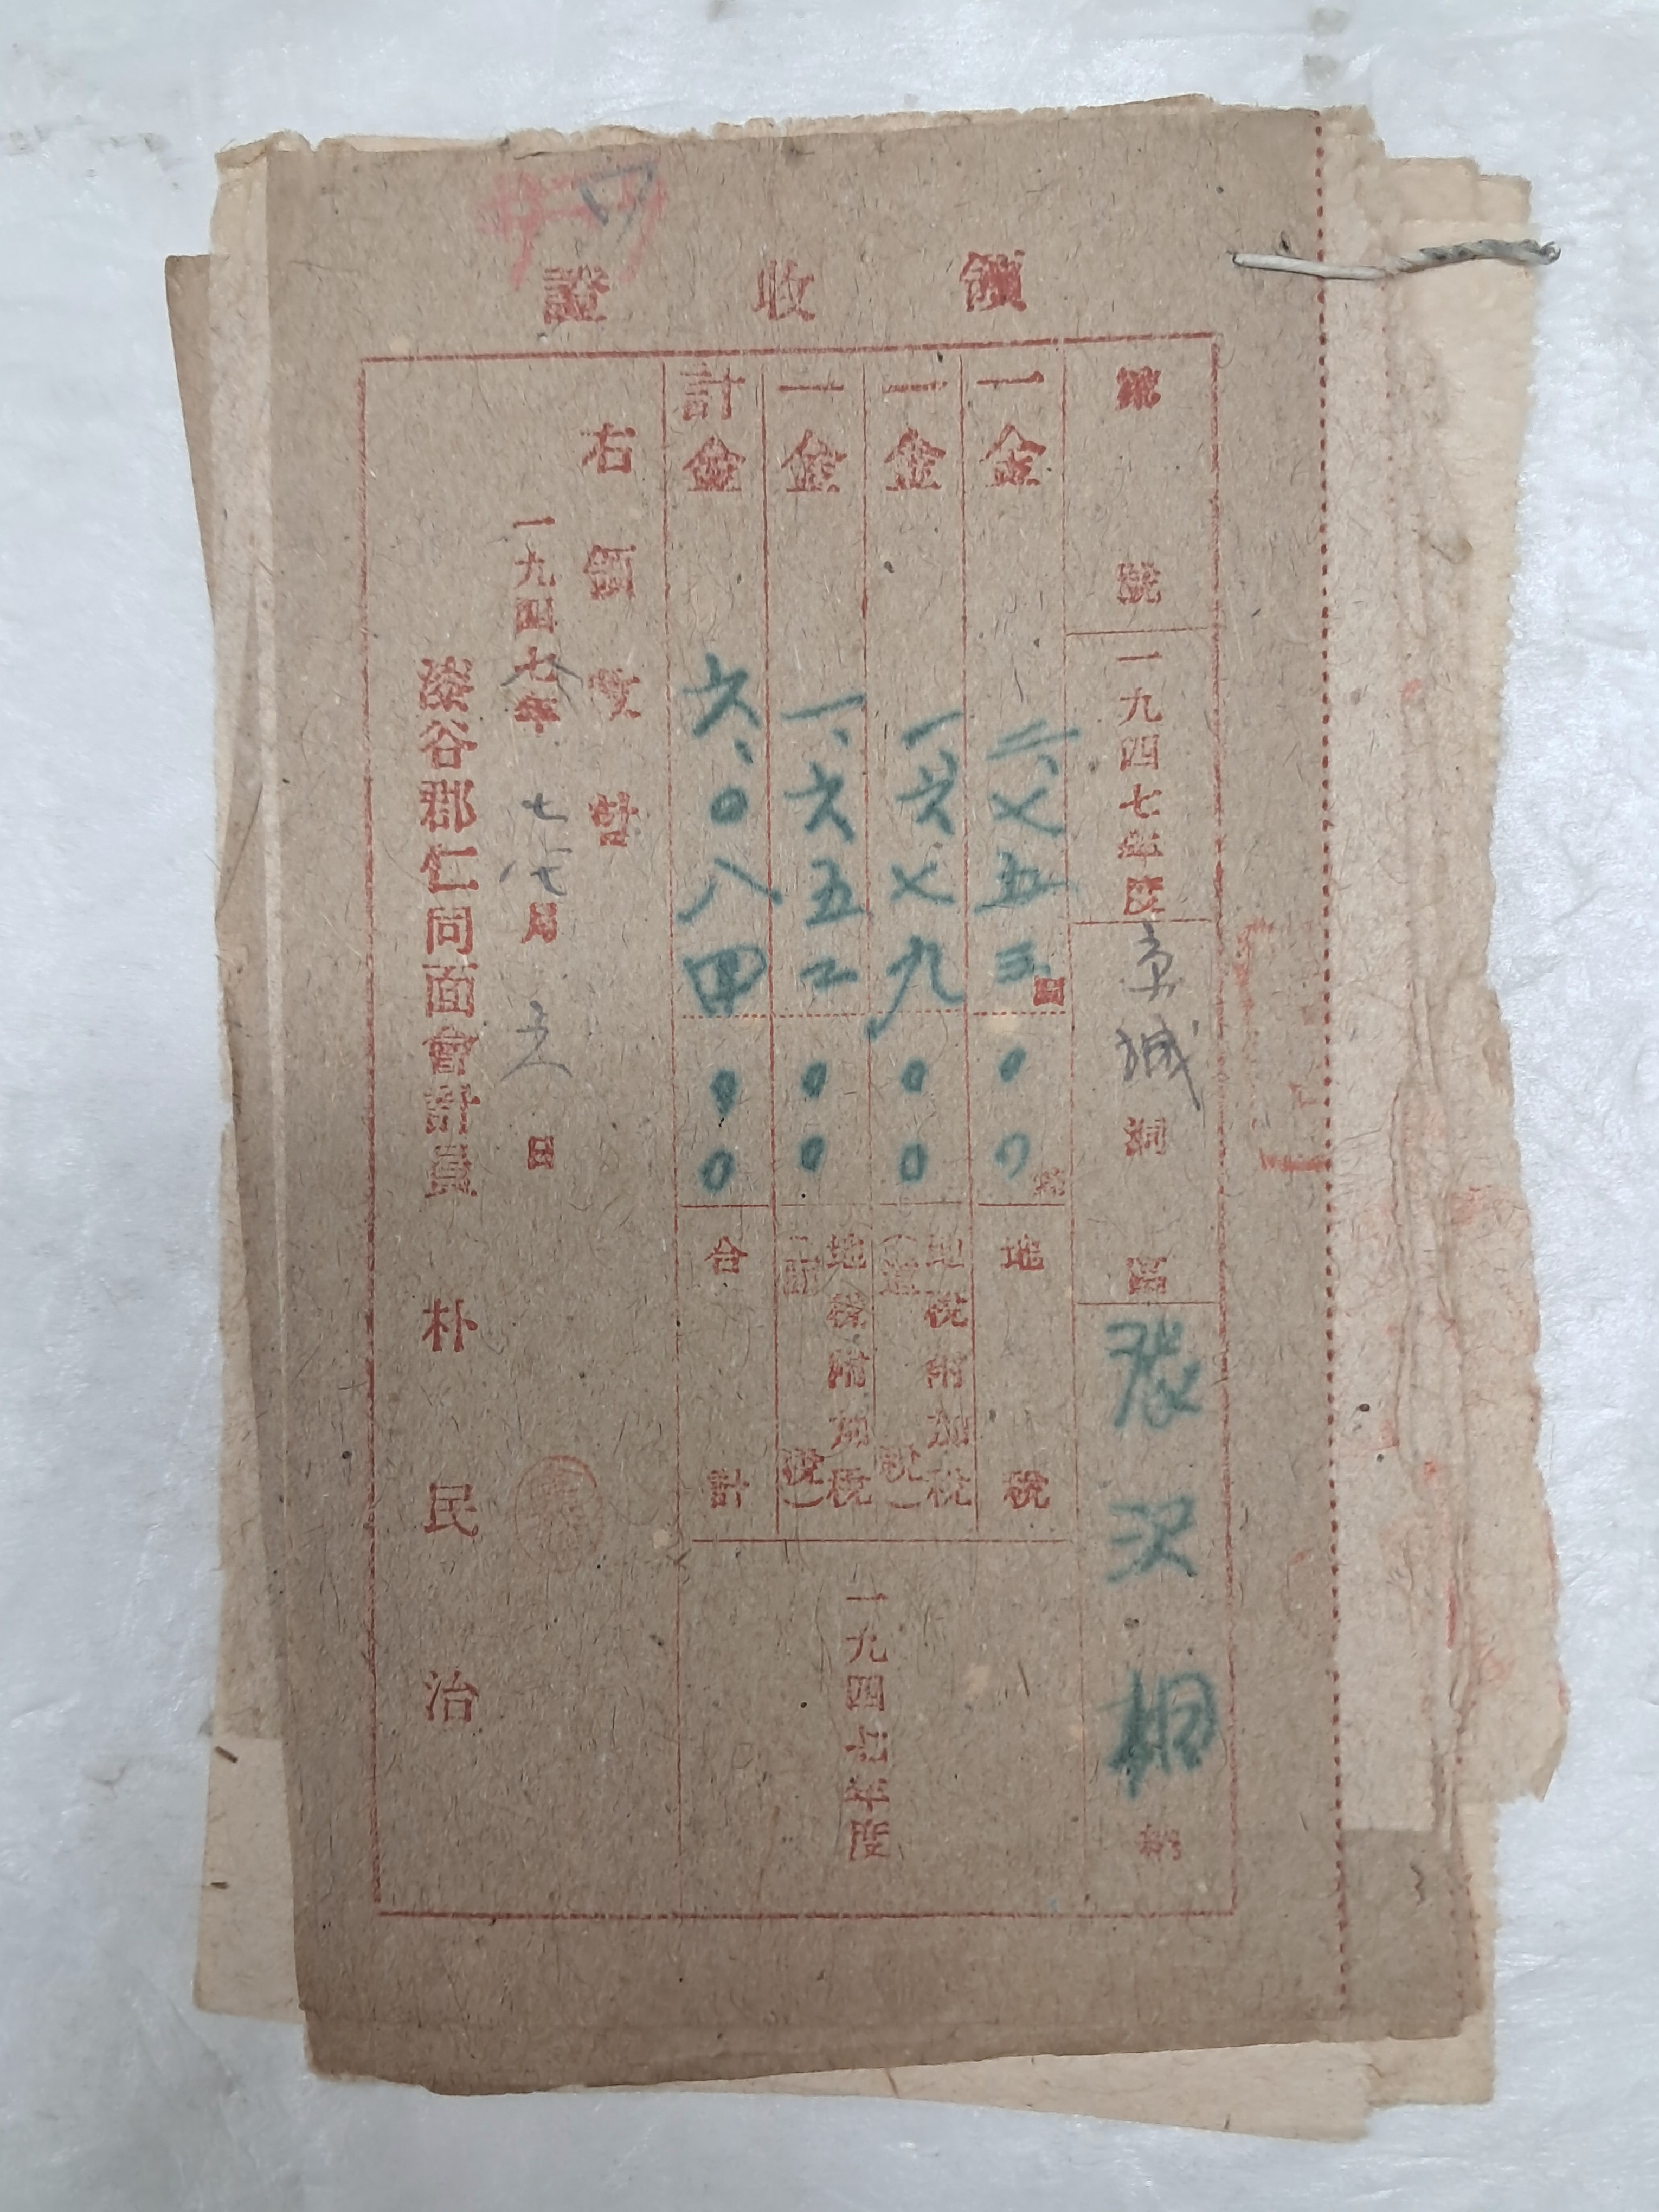 領收證
第 號 一九四七年度 京城 洞 區 張 澤 相 納
一金 二、七五三圓 〇〇錢 地稅
一金 一、六七九 〇〇 地稅附加稅
一金 一、六五二 〇〇 地稅附加稅
計金 六、〇八四 〇〇 合計
一九四七年度
右領收함
一九四 年 七月 六日
漆谷郡仁同面會計員 朴民治